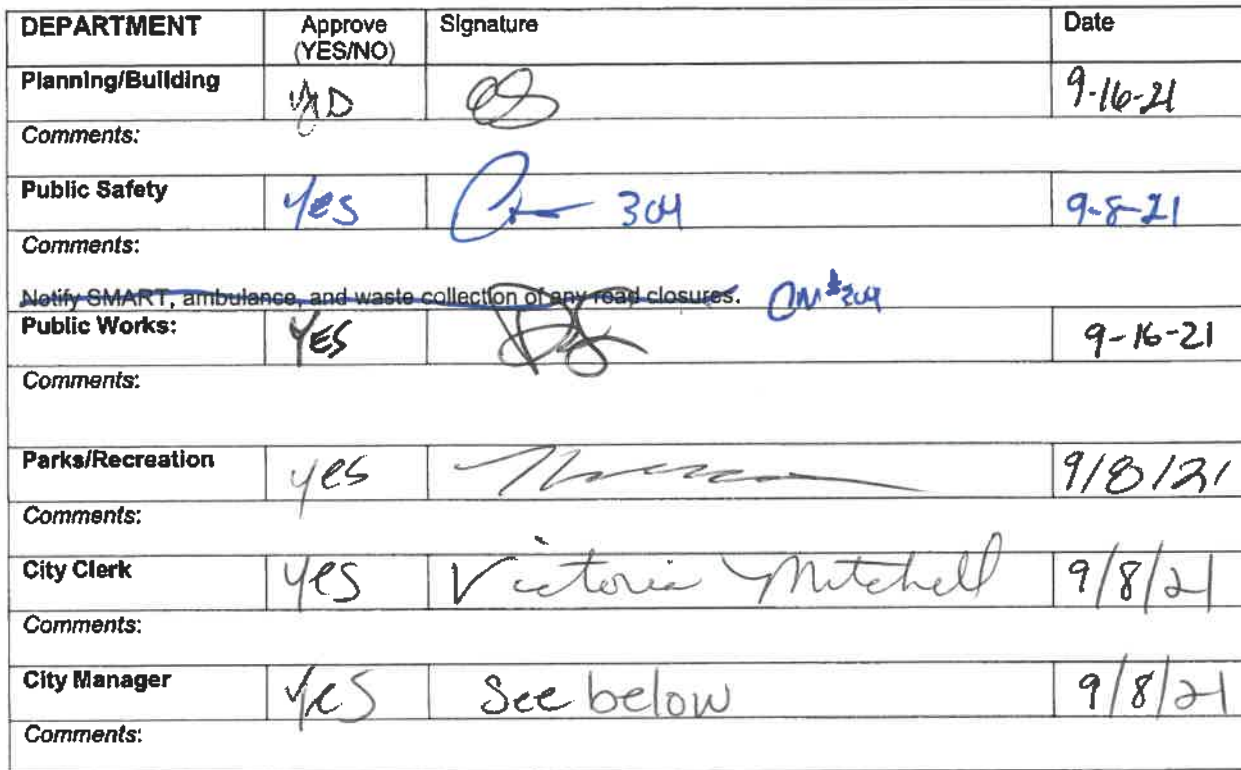 DEPARTMENT Approve (YES/NO) Signature Date
Planning/Building 9-16-21
Comments:
Public Safety Yes 304 9-8-21
Comments:
Notify SMART, ambulance, and waste collection of any road closures. #304
Public Works: YES 9-16-21
Comments:
Parks/Recreation yes 9/8/21
Comments:
City Clerk Yes Victoria Mitchell 9/8/21
Comments:
City Manager Yes See below 9/8/21
Comments: